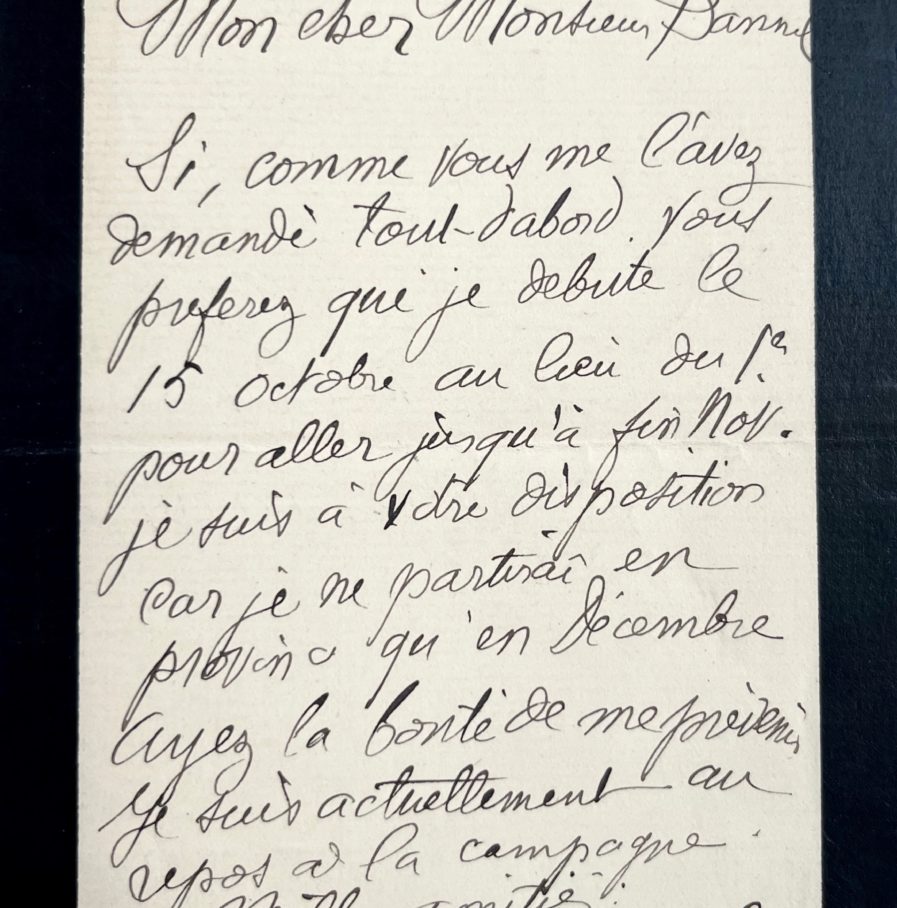 Mon cher Monsieur
Si, comme vous me l'avez
demandé tout-d'abord, vous
preferez que je debute le
15 octobre au lieu du 1er
pour aller jusqu'à fin Nov.
je suis à votre disposition
car je ne partirai en
province qu'en Décembre
Ayez la bonté de me prévenir
Je suis actuellement au
repos à la campagne.
Mille amitiés.